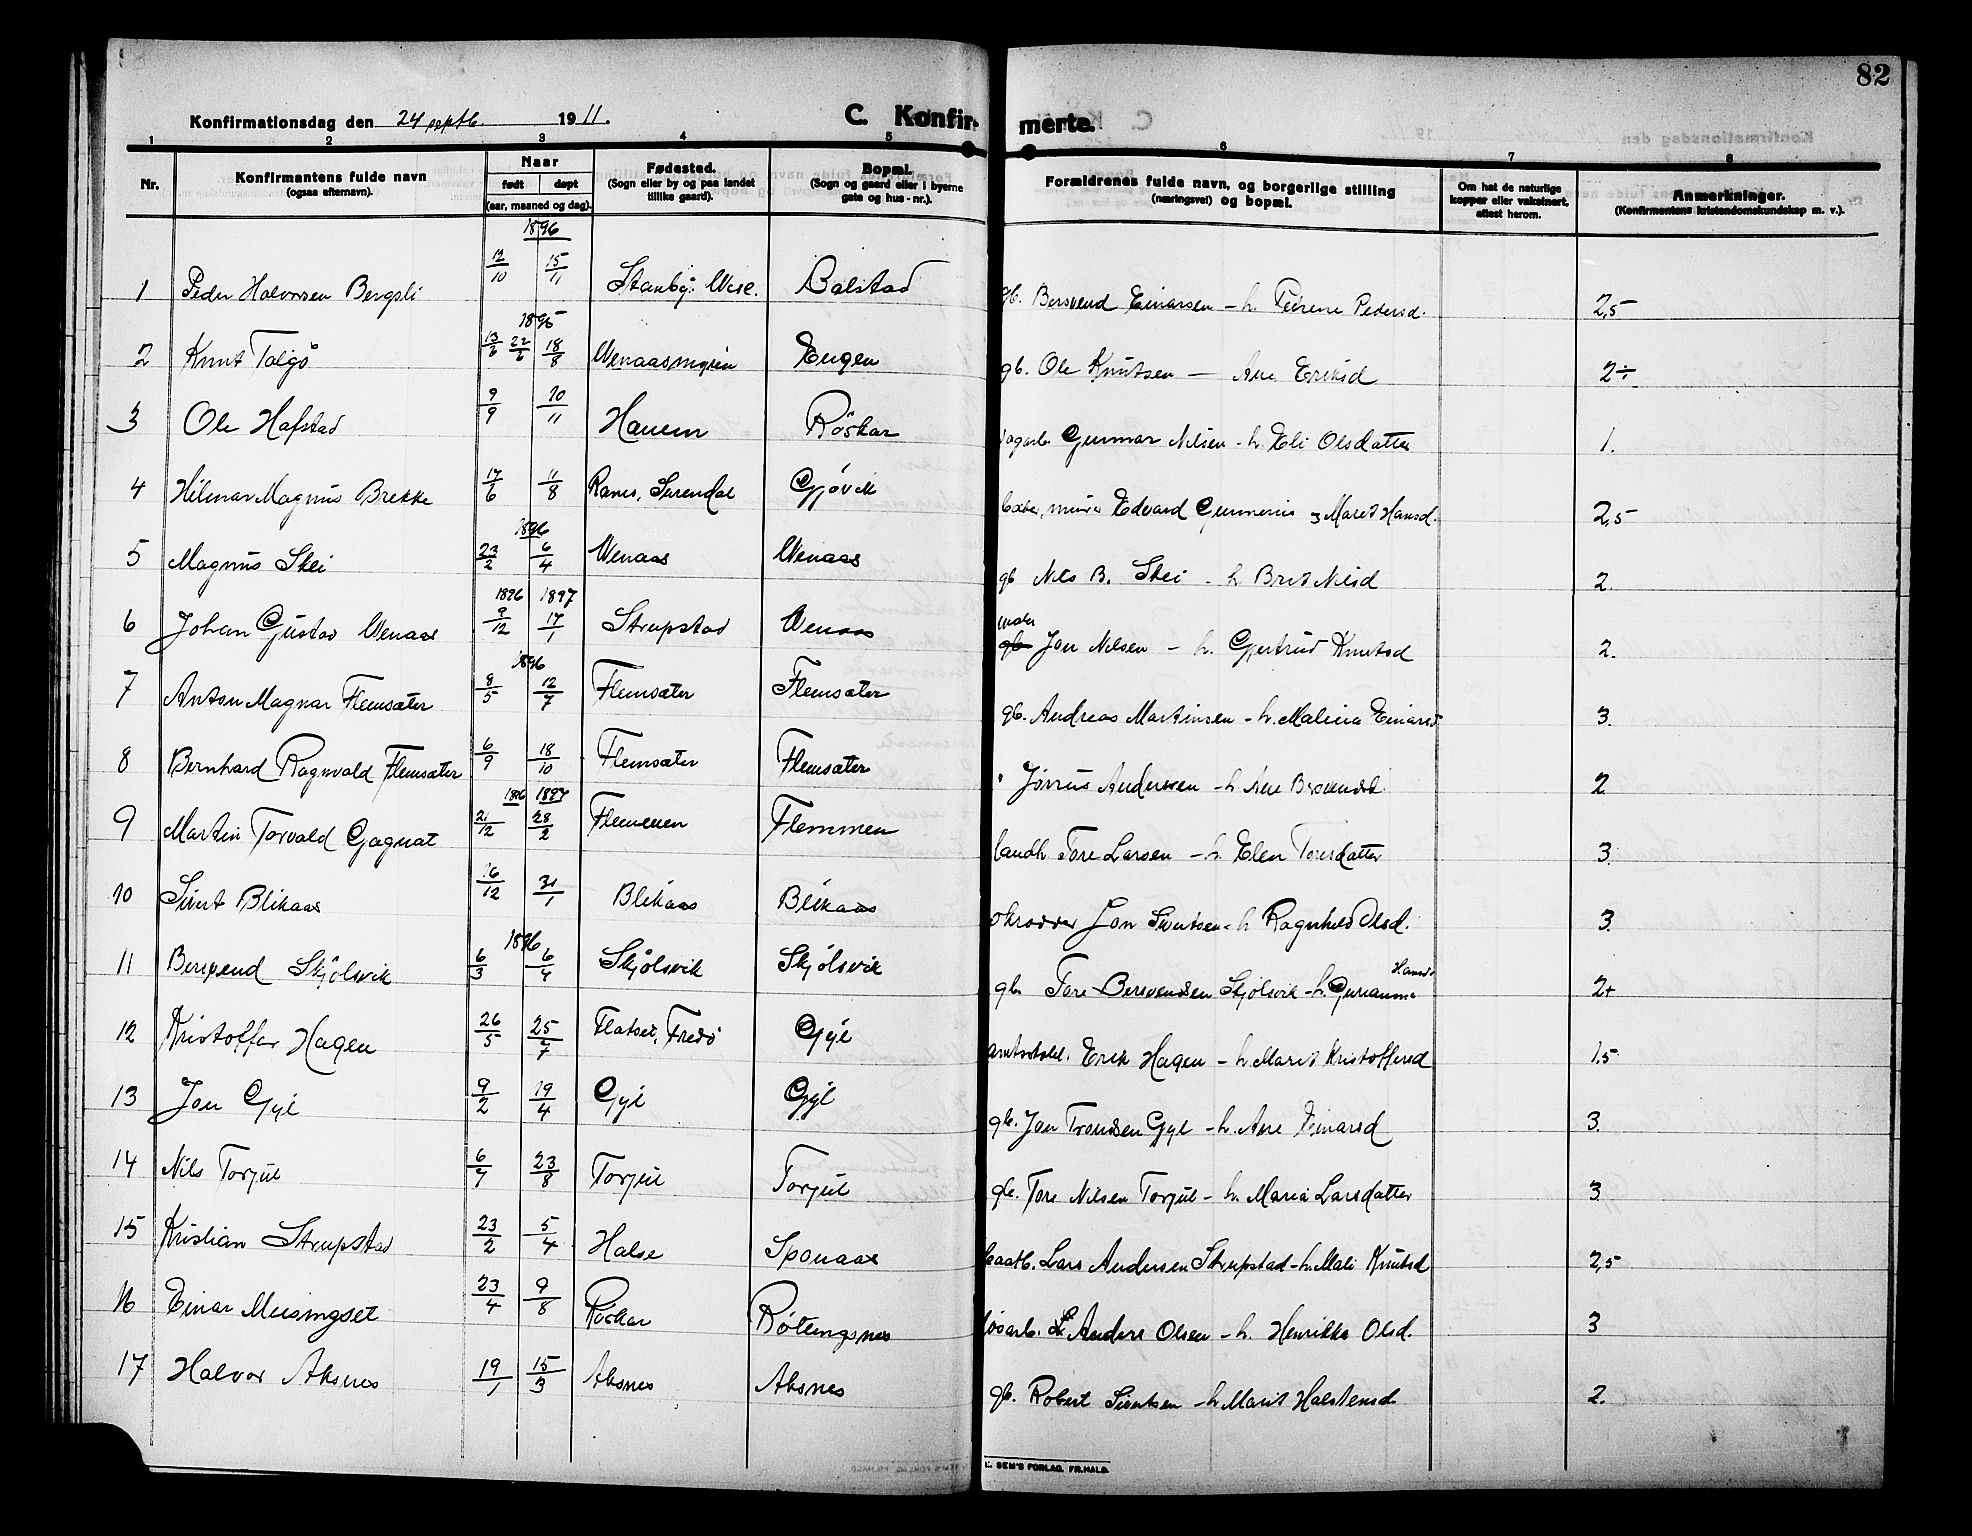 82
Konfirmationsdag den 24 septb. 1911.
C. Konfirmerte.
1 2 3 4 5 6 7 8
Nr.
Konfirmantens fulde navn
(ogsaa efternavn).
Naar
født døpt
(aar, maaned og dag).
Fødested.
(Sogn eller by og paa landet
tillike gaard).
Bopæl.
(Sogn og gaard eller i byerne
gate og hus-nr.).
Forældrenes fulde navn, og borgerlige stilling
(næringsvei) og bopæl.
Om hat de naturlige
kopper eller vaksinert,
attest herom.
Anmerkninger.
(Konfirmantens kristendomskundskap m. v.).
1896
1 Peder Halvorsen Bergsli 12/10 15/11 Balstad gb. Bersvend Einarsen - h. Pederd. 2,5
1895
2 Knut Talgö 13/6 22/6 18/8 Wenaasmyren Engen gb. Ole Knutsen — Ane Eriksd 2÷
3 Ole Hafstad 9/9 10/11 Hanem Röskar Gunnar Nilsen - h. Eli Olsdatter 1.
4 Hilmar Magnus Brekke 17/6 11/8 Ranes, Surendal Gjøvik Edvard Marit Hansd. 2,5
1896
5 Magnus Skei 23/2 6/4 Wenaas Wenaas gb Nils B. Skei - h Brit Nilsd 2.
1896 1897
6 Johan Gustav Wenaas 9/12 17/1 Strupstad Venaas gb Jon Nilsen - h. Gjertrud Knutsd 2.
1896
7 Anton Magnar Flemsæter 8/5 12/7 Flemsæter Flemsæter gb. Andreas Martinsen - h. Malena Einarsd 3.
8 Bernhard Ragnvald Flemsæter 6/9 18/10 Flemsæter Flemsæter " Andersen - h Ane 2
1896 1897
9 Martin Torvald Gagnat 21/12 28/2 Flemmen Flemmen Tore Larsen - h. Elen Toresdatter 3.
10 Sivert Blikaas 16/12 31/1 Blikaas Blikaas skrædder Jon Sivertsen - h Ragnhild Olsd. 3.
1896
11 Bersvend Skjölsvik 6/3 6/4 Skjölsvik Skjölsvik gb Tore Bersvendsen Skjölsvik - h. Gurianna Hansd 2+
12 Kristoffer Hagen 26/5 25/7 Flatset, Fredö Gyl Erik Hagen - h. Marit Kristoffersd 1.5
13 Jon Gyl 9/2 19/4 Gyl Gyl gb. Jon Trondsen Gyl - h. Ane Einarsd 3.
14 Nils Torjul 6/7 23/8 Torjul Torjul gb. Tore Nilsen Torjul - h. Maria Larsdatter 3
15 Kristian Strupstad 23/2 5/4 Halse Sponaas Lars Andersen Strupstad - h. Mali Knutsd 2,5
16 Einar Meisingset 23/4 9/8 Röskar Rötingsnes Anders Olsen - h. Henrikke Olsd. 3
17 Halvor Aksnes 19/1 15/3 Aksnes Aksnes gb. Robert Sivertsen - h Marit Halstensd. 2.
SEM'S FORLAG, FR.HALD.